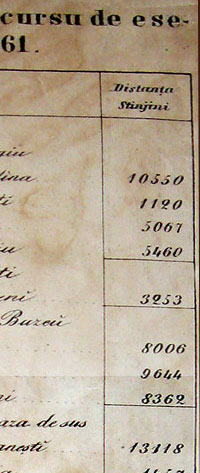 cursu de ese-
61.
Distanța
Stînjini
giu
dina 10550
ti 1120
5067
iu 5460
ti
eni 3253
Buzeü
8006
9644
ni 8362
aza de sus
anesti 13118